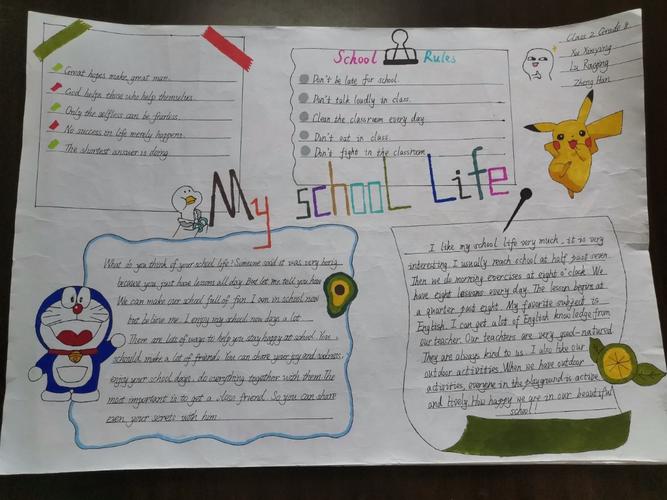 Great hopes make great man.
God helps those who help themselves.
Only the selfless can be fearless.
No success in life merely happens.
The shortest answer is doing.
School Rules
Don't be late for school.
Don't talk loudly in class.
Clean the classroom every day
Don't eat in class.
Don't fight in the classroom
Class 2 Grade 8
Xu Xinying
Lu Raoping
Zheng Han
My school Life
What do you think of your school life? Someone said it was very boring
because you just have lessons all day. But let me tell you how
We can make our school full of fun. I am in school now
but believe me. I enjoy my school now days a lot.
There are lots of ways to help you stay happy at school. You
should make a lot of friends. You can share your joy and sadness.
enjoy your school days, do everything together with them. The
most important is to get a close friend. So you can share
even your secrets with him.
I like my school life very much, it is very
interesting. I usually reach school at half past seven
Then we do morning exercises at eight o'clock. We
have eight lessons every day. The lesson begins at
a quarter past eight. My favorite subject is
English. I can get a lot of English knowledge from
our teacher. Our teachers are very good-natured
They are always kind to us. I also like our
outdoor activities. When we have outdoor
activities, everyone in the playground is active
and lively. How happy we are in our beautiful
school!